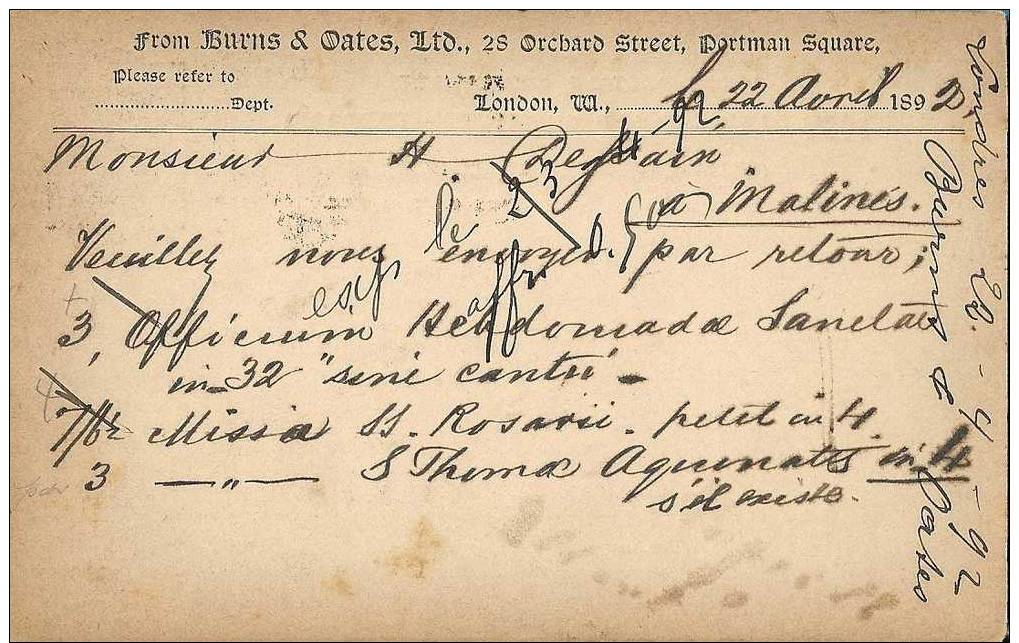 From Burns & Oates, Ltd., 28 Orchard Street, Portman Square,
Please refer to
Dept.
London, W., 22 Avril 1892
Monsieur H Dessain
à Malines.
Veuillez nous envoyer par retour;
3 Officium Hebdomadae Sanctae
in-32 "sine cantu" -
Missa SS. Rosarii. petit in 4.
3 — " — S Thomae Aquinatis in 4
s'il existe.
23/4
exp
affr
Londres 22-4-92
Burns & Oates